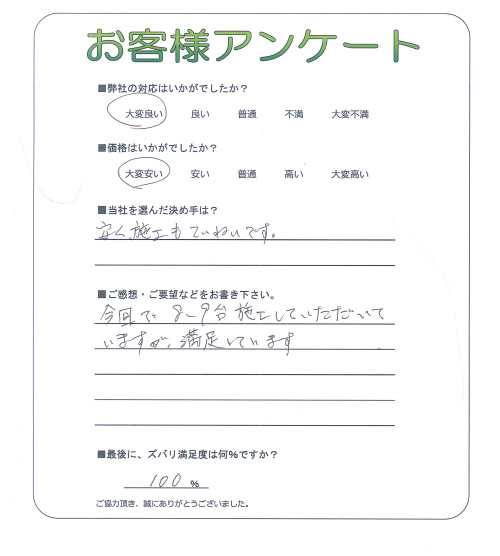 お客様アンケート
■弊社の対応はいかがでしたか？
大変良い 良い 普通 不満 大変不満
■価格はいかがでしたか？
大変安い 安い 普通 高い 大変高い
■当社を選んだ決め手は？
安く、施工もていねいです。
■ご感想・ご要望などをお書き下さい。
今回で8～9台施工していただいて
いますが、満足しています
■最後に、ズバリ満足度は何%ですか？
100 %
ご協力頂き、誠にありがとうございました。